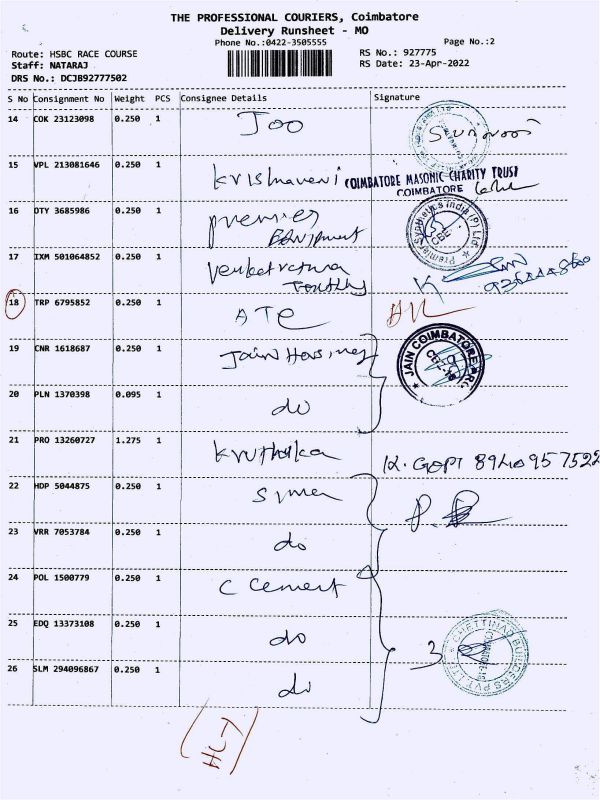 THE PROFESSIONAL COURIERS, Coimbatore
Delivery Runsheet - MO
Phone No.:0422-3505555 Page No.:2
Route: HSBC RACE COURSE RS No.: 927775
Staff: NATARAJ RS Date: 23-Apr-2022
DRS No.: DCJB92777502
S No Consignment No Weight PCS Consignee Details Signature
14 COK 23123098 0.250 1 Joo
15 VPL 213081646 0.250 1 Krishnaveni COIMBATORE MASONIC CHARITY TRUST
COIMBATORE
16 DTY 3685986 0.250 1 premier
Equipment Premier Synthetics India (P) Ltd. CBE
17 IXM 501064852 0.250 1
18 TRP 6795852 0.250 1 ATE
19 CNR 1618687 0.250 1 Jain JAIN COIMBATORE
20 PLN 1370398 0.095 1 do
21 PRO 13260727 1.275 1 K. GOPI 8940957522
22 HDP 5044875 0.250 1
23 VRR 7053784 0.250 1 do
24 POL 1500779 0.250 1 C Cement
25 EDQ 13373108 0.250 1 do 3 CHETTINAD BUILDERS PVT. LTD
26 SLM 294096867 0.250 1 do